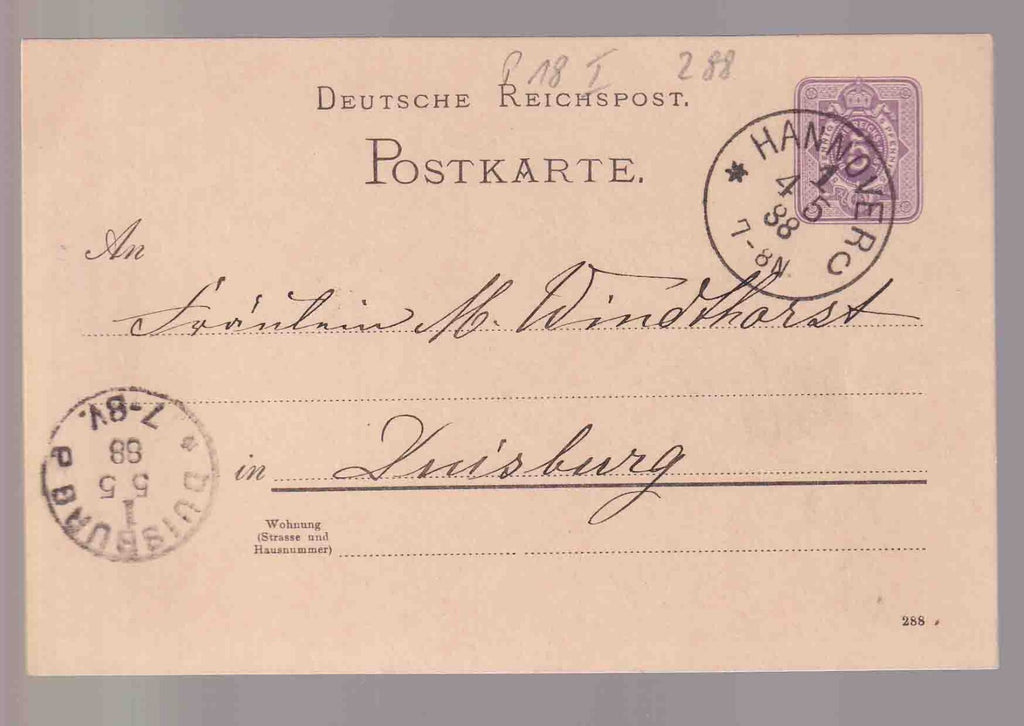 P 18 I 288
DEUTSCHE REICHSPOST.
POSTKARTE.
* HANNOVER C
1
4 5
88
7-8N.
An
Fräulein M. Windthorst
in Duisburg
* DUISBURG P
1
5 5
88
7-8V.
Wohnung
(Strasse und
Hausnummer)
288